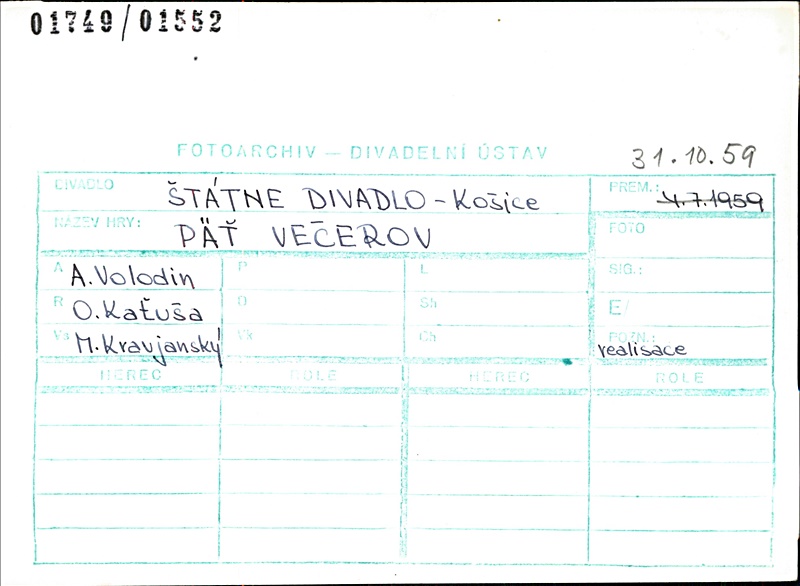 01749/01552
FOTOARCHIV — DIVADELNÍ ÚSTAV
31.10.59
DIVADLO ŠTÁTNE DIVADLO - Košice
PREM.: 4.7.1959
NÁZEV HRY: PÄŤ VEČEROV
FOTO
A A. Volodin P L SIG.:
R O. Kaťuša O Sh E/
Vs M. Kravjanský Vk Ch POZN.: realisace
HEREC ROLE HEREC ROLE